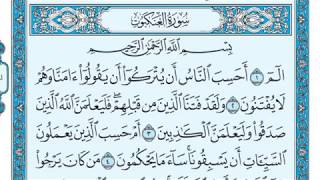 سُورَةُ الْعَنكَبُوتِ
بِسْمِ اللَّهِ الرَّحْمَٰنِ الرَّحِيمِ
الٓمٓ ١ أَحَسِبَ النَّاسُ أَن يُتْرَكُوٓا۟ أَن يَقُولُوٓا۟ ءَامَنَّا وَهُمْ
لَا يُفْتَنُونَ ٢ وَلَقَدْ فَتَنَّا الَّذِينَ مِن قَبْلِهِمْ فَلَيَعْلَمَنَّ اللَّهُ الَّذِينَ
صَدَقُوا۟ وَلَيَعْلَمَنَّ الْكَٰذِبِينَ ٣ أَمْ حَسِبَ الَّذِينَ يَعْمَلُونَ
السَّيِّـَٔاتِ أَن يَسْبِقُونَا سَآءَ مَا يَحْكُمُونَ ٤ مَن كَانَ يَرْجُوا۟